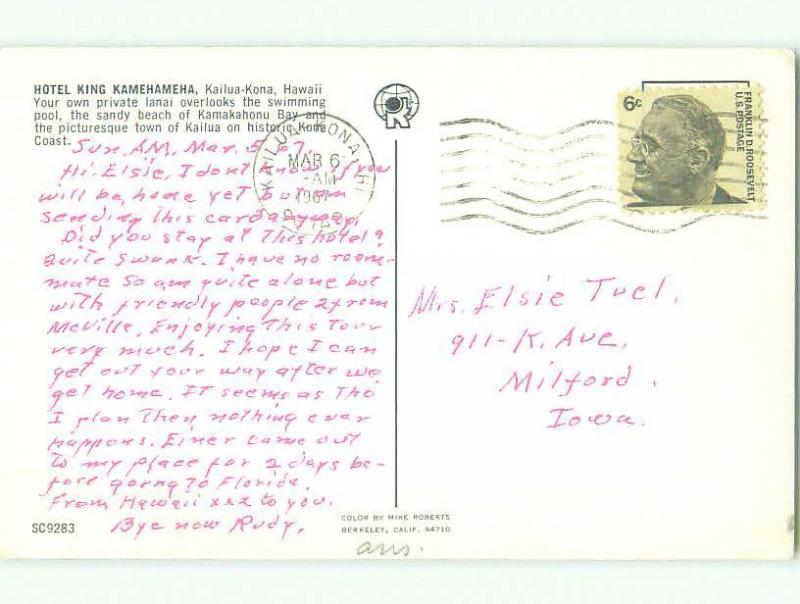 HOTEL KING KAMEHAMEHA, Kailua-Kona, Hawaii
Your own private lanai overlooks the swimming
pool, the sandy beach of Kamakahonu Bay and
the picturesque town of Kailua on historic Kona
Coast.
Sun, AM, Mar. 5, 67.
Hi. Elsie, I dont know if you
will be home yet but am
sending this card anyway.
Did you stay at this hotel?
Quite Swank. I have no room-
mate so am quite alone but
with friendly people 2 from
McVille. Enjoying This Tour
very much. I hope I can
get out your way after we
get home. IT seems as Tho
I plan Then nothing ever
happens. Einer came out
To my place for 2 days be-
fore going To Florida.
From Hawaii xxx to you.
Bye now Rudy.
SC9283
KAILUA KONA, HI
MAR 6
AM
1967
6c
FRANKLIN D. ROOSEVELT
U.S. POSTAGE
Mrs. Elsie Tuel.
911-K. Ave.
Milford.
Iowa.
COLOR BY MIKE ROBERTS
BERKELEY, CALIF. 94710
ans.